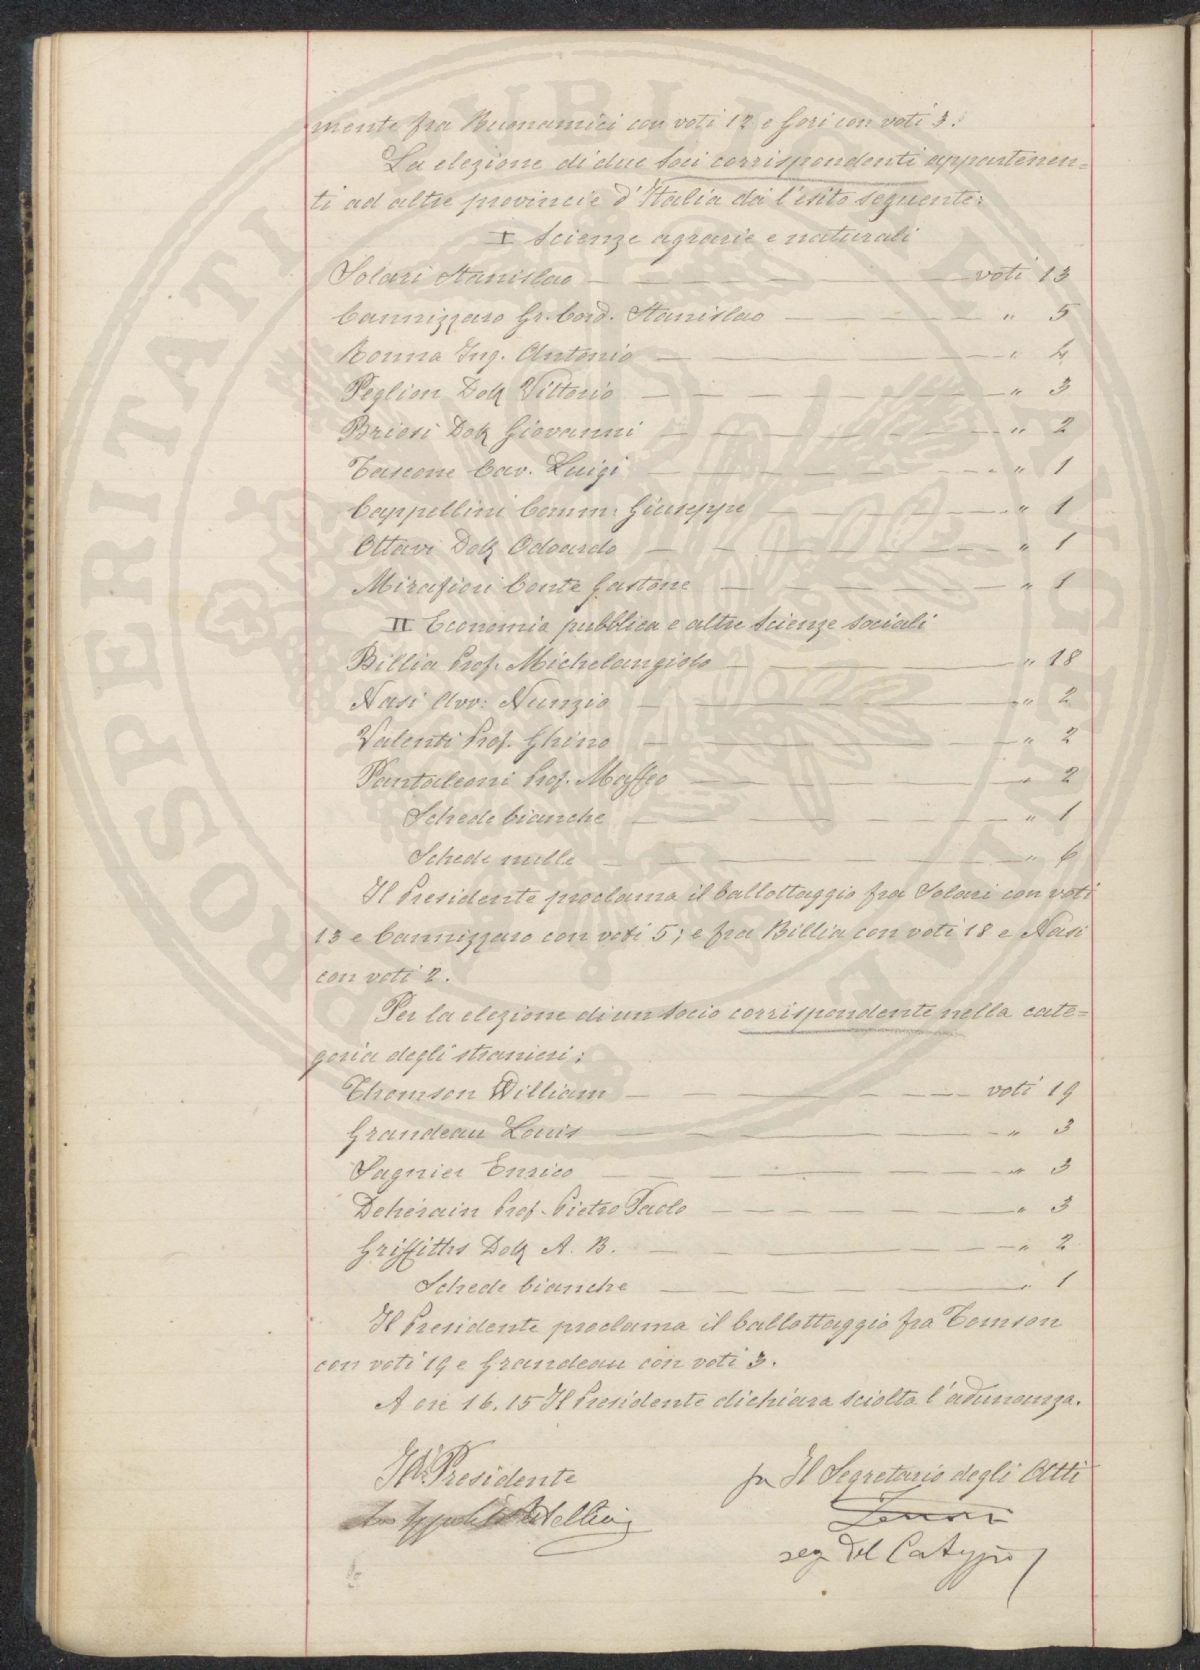 mente fra Buonamici con voti 12 e Gori con voti 3.
La elezione di due Soci corrispondenti appartenen=
ti ad altre provincie d'Italia dà l'esito seguente:
I Scienze agrarie e naturali
Solari Stanislao — voti 13
Cannizzaro Gr. Cord. Stanislao — " 5
Ronna Ing. Antonio — " 4
Peglion Dott Vittorio — " 3
Briosi Dott Giovanni — " 2
Tascone Cav. Luigi — " 1
Cappellini Comm: Giuseppe — " 1
Ottavi Dott Odoardo — " 1
Mirafiori Conte Gastone — " 1
II Economia pubblica e altre Scienze sociali
Billia Prof. Michelangiolo — " 18
Nasi Avv: Nunzio — " 2
Valenti Prof. Ghino — " 2
Pantaleoni Prof. Maffeo — " 2
Schede bianche — " 1
Schede nulle — " 6
Il Presidente proclama il ballottaggio fra Solari con voti
13 e Cannizzaro con voti 5; e fra Billia con voti 18 e Nasi
con voti 2.
Per la elezione di un Socio corrispondente nella cate=
goria degli stranieri:
Thomson William — voti 19
Grandeau Louis — " 3
Sagnier Enrico — " 3
Dehérain Prof. Pietro Paolo — " 3
Griffiths Dott A. B. — " 2
Schede bianche — " 1
Il Presidente proclama il ballottaggio fra Tomson
con voti 19 e Grandeau con voti 3.
A ore 16.15 Il Presidente dichiara sciolta l'adunanza.
Il Presidente
pr Il Segretario degli Atti
seg del
PROSPERITATI PUBLICAE AUGENDAE